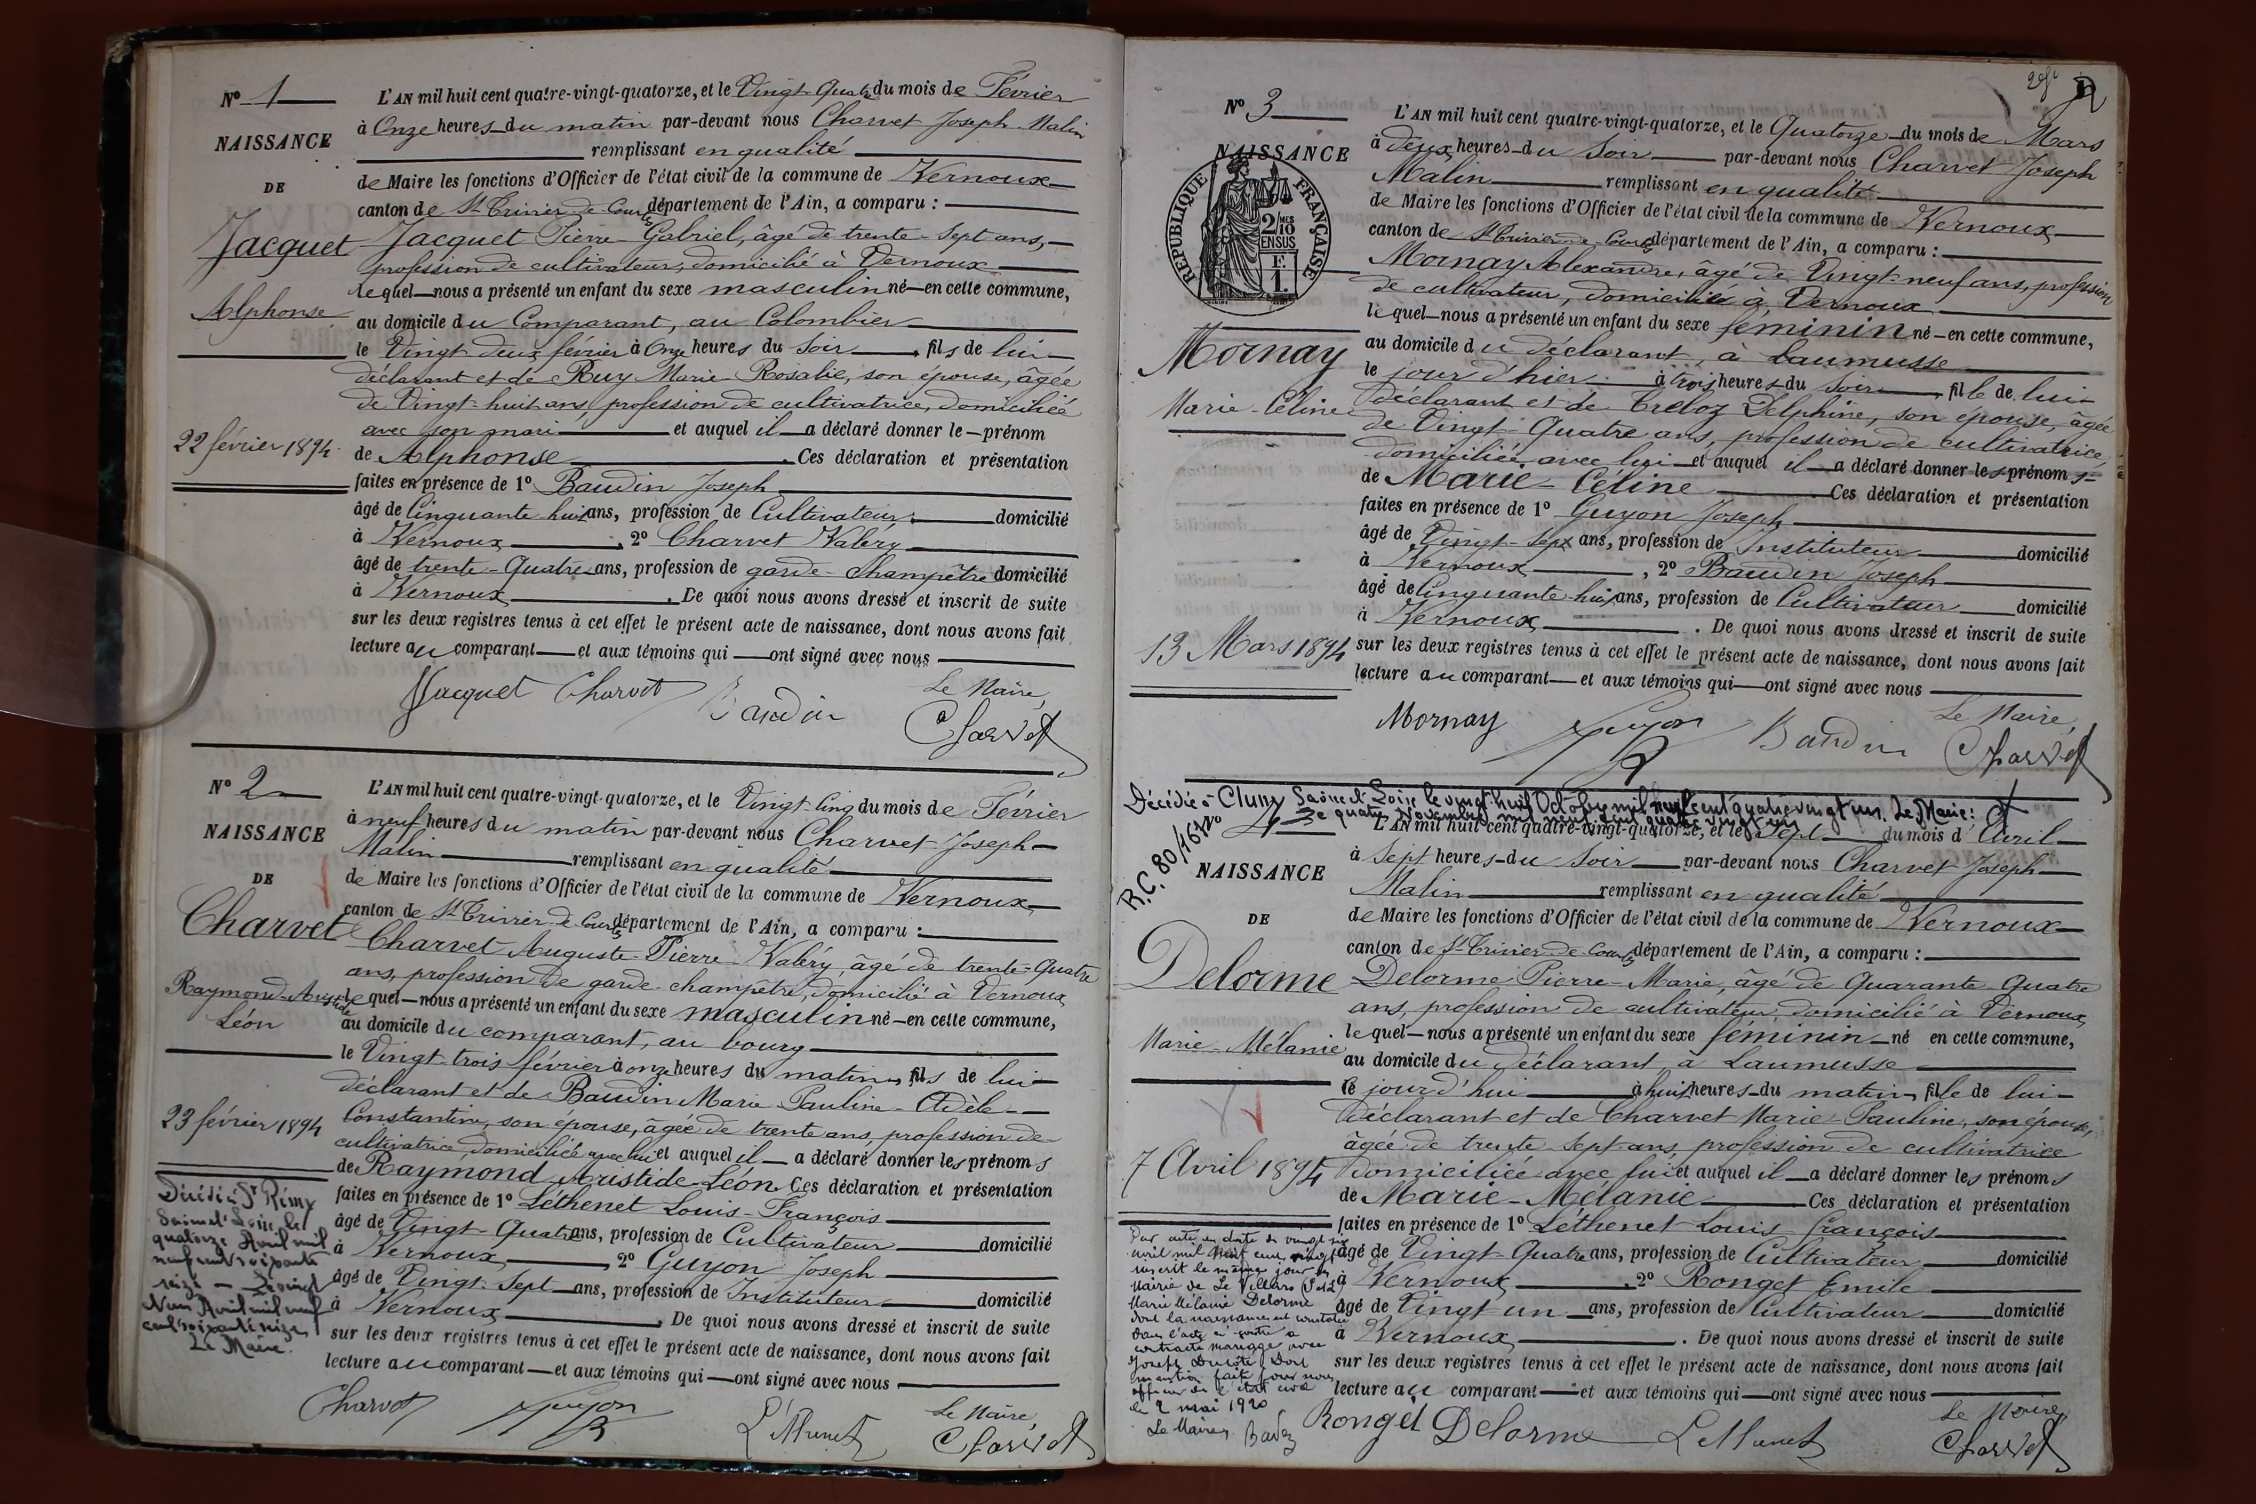 N° 1
NAISSANCE
DE
Jacquet
Alphonse
22 février 1894
L'AN mil huit cent quatre-vingt-quatorze, et le Vingt-Quatre du mois de Février
à Onze heures du matin par-devant nous Charvet Joseph-Malin
remplissant en qualité
de Maire les fonctions d'Officier de l'état civil de la commune de Vernoux
canton de St Trivier-de-Courtes département de l'Ain, a comparu :
Jacquet Pierre-Gabriel, âgé de trente-sept ans,
profession de cultivateur, domicilié à Vernoux
lequel nous a présenté un enfant du sexe masculin né en cette commune,
au domicile du Comparant, au Colombier
le Vingt-deux février à Onze heures du Soir, fils de lui
déclarant et de Ruy Marie-Rosalie, son épouse, âgée
de Vingt-huit ans, profession de cultivatrice, domiciliée
avec son mari et auquel il a déclaré donner le prénom
de Alphonse. Ces déclaration et présentation
faites en présence de 1° Baudin Joseph
âgé de Cinquante-huit ans, profession de Cultivateur domicilié
à Vernoux, 2° Charvet Valery
âgé de trente-Quatre ans, profession de garde-Champêtre domicilié
à Vernoux. De quoi nous avons dressé et inscrit de suite
sur les deux registres tenus à cet effet le présent acte de naissance, dont nous avons fait
lecture au comparant et aux témoins qui ont signé avec nous
Jacquet Charvet Baudin Le Maire,
Charvet
N° 2
NAISSANCE
DE
Charvet
Raymond-Aristide
Léon
23 février 1894
L'AN mil huit cent quatre-vingt-quatorze, et le Vingt-Cinq du mois de Février
à neuf heures du matin par-devant nous Charvet Joseph
Malin remplissant en qualité
de Maire les fonctions d'Officier de l'état civil de la commune de Vernoux
canton de St Trivier-de-Courtes département de l'Ain, a comparu :
Charvet Auguste-Pierre-Valéry, âgé de trente-Quatre
ans, profession de garde-champêtre, domicilié à Vernoux
lequel nous a présenté un enfant du sexe masculin né en cette commune,
au domicile du comparant, au bourg
le Vingt-trois février à onze heures du matin, fils de lui
déclarant et de Baudin Marie-Pauline-Adèle
Constantine, son épouse, âgée de trente ans, profession de
cultivatrice, domiciliée avec lui et auquel il a déclaré donner les prénoms
de Raymond-Aristide-Léon Ces déclaration et présentation
faites en présence de 1° Léthenet Louis-François
âgé de Vingt-Quatre ans, profession de Cultivateur domicilié
à Vernoux, 2° Guyon Joseph
âgé de Vingt-Sept ans, profession de Instituteur domicilié
à Vernoux. De quoi nous avons dressé et inscrit de suite
sur les deux registres tenus à cet effet le présent acte de naissance, dont nous avons fait
lecture au comparant et aux témoins qui ont signé avec nous
Décédé à St Rémy
Saône et Loire le
quatorze Avril mil
neuf cent soixante
seize - Le vingt
Avril mil neuf
cent soixante seize
Le Maire.
Charvet Guyon Léthenet Le Maire,
Charvet
N° 3
NAISSANCE
RÉPUBLIQUE FRANÇAISE
2/10 MES
EN SUS
F.
1.
Mornay
Marie-Céline
13 Mars 1894
L'AN mil huit cent quatre-vingt-quatorze, et le Quatorze du mois de Mars
à deux heures du Soir par-devant nous Charvet Joseph
Malin remplissant en qualité
de Maire les fonctions d'Officier de l'état civil de la commune de Vernoux
canton de St Trivier-de-Courtes département de l'Ain, a comparu :
Mornay Alexandre, âgé de Vingt-neuf ans, profession
de cultivateur, domicilié à Vernoux
lequel nous a présenté un enfant du sexe féminin né en cette commune,
au domicile du déclarant, à Laumusse
le jour d'hier à trois heures du Soir, fille de lui
déclarant et de Treloz Delphine, son épouse, âgée
de Vingt-Quatre ans, profession de cultivatrice,
domiciliée avec lui et auquel il a déclaré donner les prénoms
de Marie-Céline Ces déclaration et présentation
faites en présence de 1° Guyon Joseph
âgé de Vingt-Sept ans, profession de Instituteur domicilié
à Vernoux, 2° Baudin Joseph
âgé de Cinquante-huit ans, profession de Cultivateur domicilié
à Vernoux. De quoi nous avons dressé et inscrit de suite
sur les deux registres tenus à cet effet le présent acte de naissance, dont nous avons fait
lecture au comparant et aux témoins qui ont signé avec nous
Mornay Guyon Baudin Le Maire,
Charvet
Décédée à Cluny Saône et Loire le vingt huit Octobre mil neuf cent quatre vingt un. Le Maire :
Le quatre Novembre mil neuf cent quatre vingt un
R.C. 80/1671
N° 4
NAISSANCE
DE
Delorme
Marie-Mélanie
7 Avril 1894
L'AN mil huit cent quatre-vingt-quatorze, et le Sept du mois d'Avril
à Sept heures du Soir par-devant nous Charvet Joseph
Malin remplissant en qualité
de Maire les fonctions d'Officier de l'état civil de la commune de Vernoux
canton de St Trivier-de-Courtes département de l'Ain, a comparu :
Delorme Pierre-Marie, âgé de Quarante-Quatre
ans, profession de cultivateur, domicilié à Vernoux
lequel nous a présenté un enfant du sexe féminin né en cette commune,
au domicile du déclarant à Laumusse
le jour d'hui à huit heures du matin, fille de lui
déclarant et de Charvet Marie-Pauline, son épouse,
âgée de trente-Sept ans, profession de cultivatrice
domiciliée avec lui et auquel il a déclaré donner les prénoms
de Marie-Mélanie Ces déclaration et présentation
faites en présence de 1° Léthenet Louis-François
âgé de Vingt-Quatre ans, profession de Cultivateur domicilié
à Vernoux, 2° Ronget Emile
âgé de Vingt-un ans, profession de Cultivateur domicilié
à Vernoux. De quoi nous avons dressé et inscrit de suite
sur les deux registres tenus à cet effet le présent acte de naissance, dont nous avons fait
lecture au comparant et aux témoins qui ont signé avec nous
Par acte en date du vingt six
avril mil neuf cent vingt
inscrit le même jour
Mairie de Le Villars (S et L)
Marie Mélanie Delorme
dont la naissance est constatée
dans l'acte ci-contre a
contracté mariage avec
Joseph Dont
mention faite par nous
officier de l'état civil
le 2 mai 1920
Le Maire
Ronget Delorme Léthenet Le Maire,
Charvet